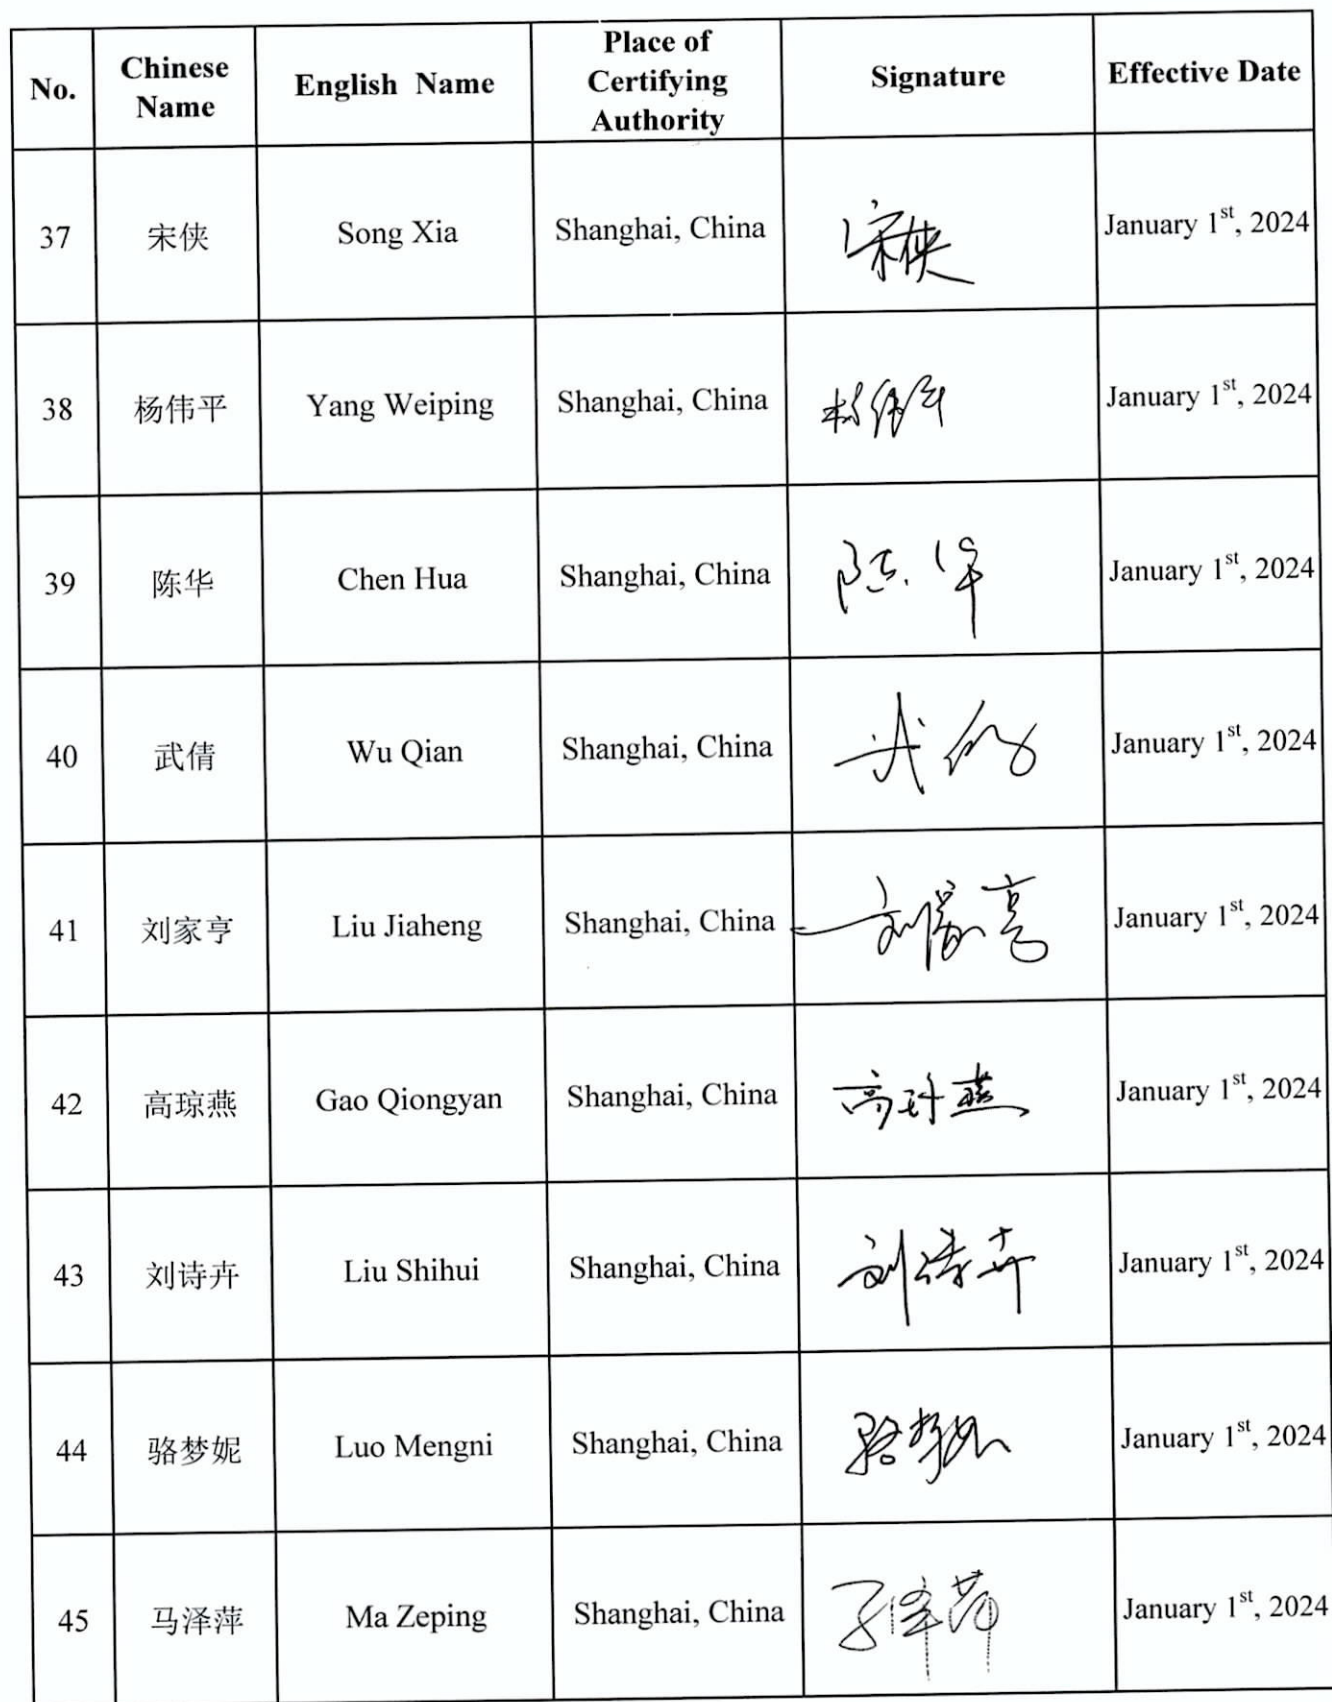 No. Chinese Name English Name Place of Certifying Authority Signature Effective Date
37 宋侠 Song Xia Shanghai, China 宋侠 January 1st, 2024
38 杨伟平 Yang Weiping Shanghai, China 杨伟平 January 1st, 2024
39 陈华 Chen Hua Shanghai, China 陈华 January 1st, 2024
40 武倩 Wu Qian Shanghai, China 武倩 January 1st, 2024
41 刘家亨 Liu Jiaheng Shanghai, China 刘家亨 January 1st, 2024
42 高琼燕 Gao Qiongyan Shanghai, China 高琼燕 January 1st, 2024
43 刘诗卉 Liu Shihui Shanghai, China 刘诗卉 January 1st, 2024
44 骆梦妮 Luo Mengni Shanghai, China 骆梦妮 January 1st, 2024
45 马泽萍 Ma Zeping Shanghai, China 马泽萍 January 1st, 2024